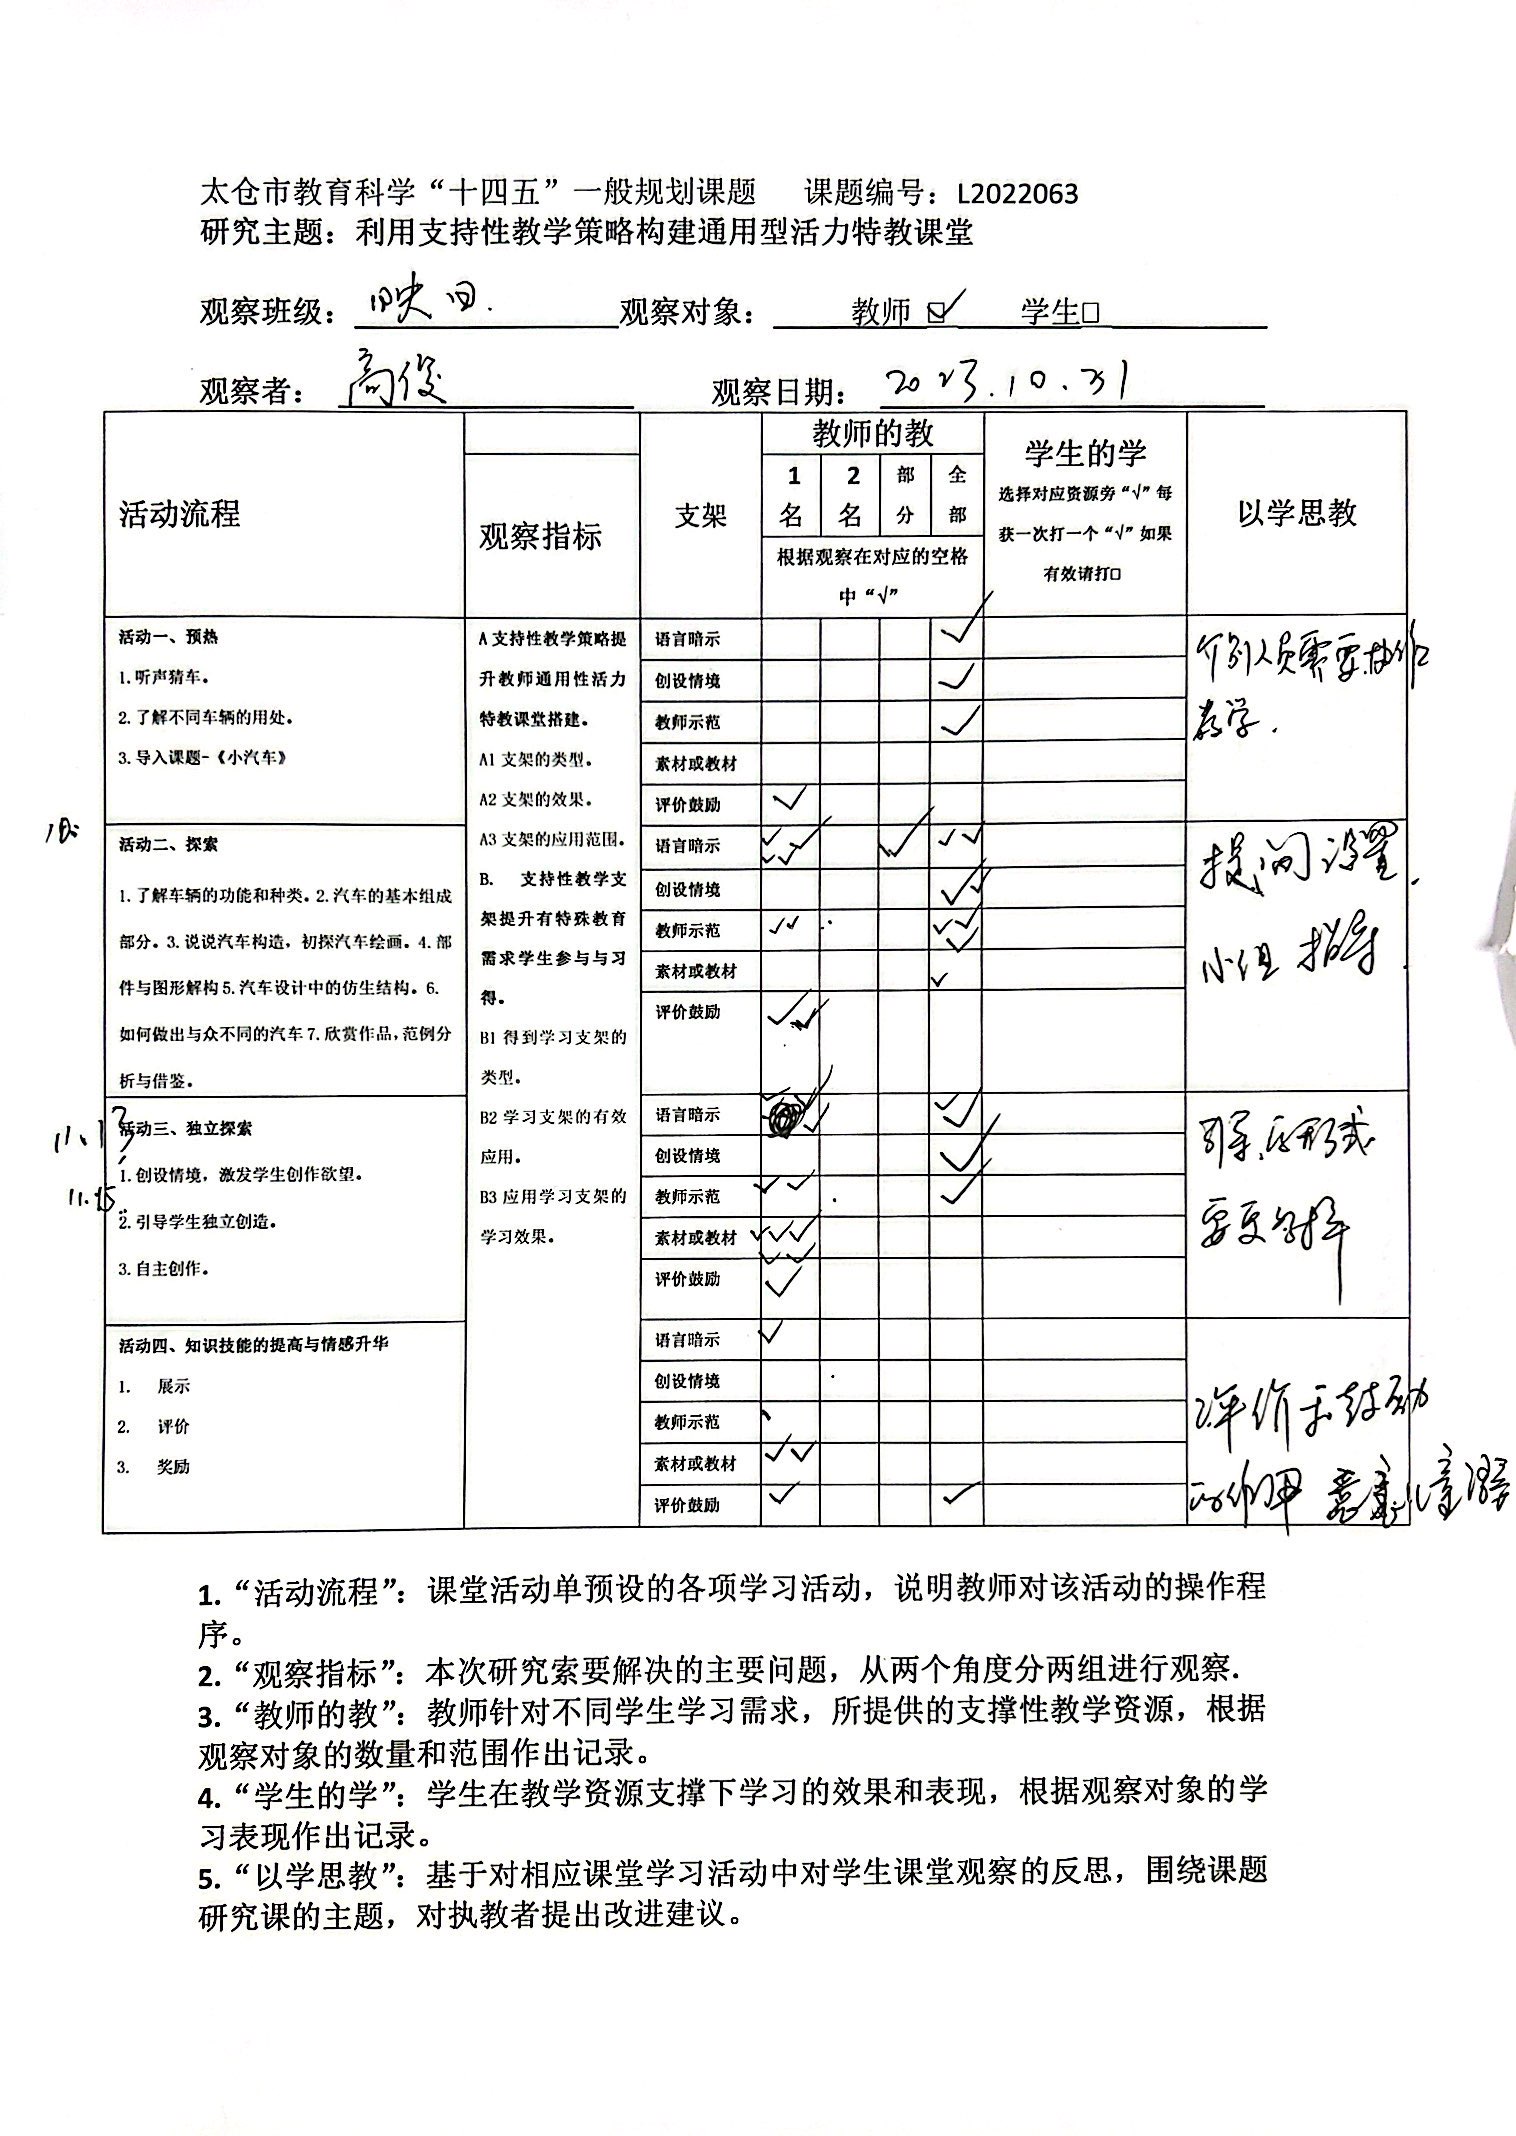 太仓市教育科学“十四五”一般规划课题 课题编号：L2022063
研究主题：利用支持性教学策略构建通用型活力特教课堂
观察班级： 观察对象： 教师 ☑ 学生□
观察者：高俊 观察日期：2023.10.31
活动流程
观察指标
支架
教师的教
1名
2名
部分
全部
根据观察在对应的空格
中“√”
学生的学
选择对应资源旁“√”每
获一次打一个“√”如果
有效请打□
以学思教
活动一、预热
1.听声猜车。
2.了解不同车辆的用处。
3.导入课题-《小汽车》
A 支持性教学策略提
升教师通用性活力
特教课堂搭建。
A1 支架的类型。
A2 支架的效果。
A3 支架的应用范围。
B. 支持性教学支
架提升有特殊教育
需求学生参与与习
得。
B1 得到学习支架的
类型。
B2 学习支架的有效
应用。
B3 应用学习支架的
学习效果。
语言暗示 √
创设情境 √
教师示范 √
素材或教材
评价鼓励 √
个别人员需要
教学.
活动二、探索
1.了解车辆的功能和种类。2.汽车的基本组成
部分。3.说说汽车构造，初探汽车绘画。4.部
件与图形解构5.汽车设计中的仿生结构。6.
如何做出与众不同的汽车7.欣赏作品,范例分
析与借鉴。
语言暗示 √√√√ √ √√
创设情境 √√
教师示范 √√ √√√
素材或教材 √
评价鼓励 √√
提问设置.
小组指导.
11.13
活动三、独立探索
1.创设情境，激发学生创作欲望。
11.15
2.引导学生独立创造。
3.自主创作。
语言暗示 √√
创设情境 √
教师示范 √√ √
素材或教材 √√√
评价鼓励 √√√
引导的形式
要更多样
活动四、知识技能的提高与情感升华
1. 展示
2. 评价
3. 奖励
语言暗示 √
创设情境
教师示范
素材或教材 √√
评价鼓励 √ √
评价和鼓励
的作用
1.“活动流程”：课堂活动单预设的各项学习活动，说明教师对该活动的操作程
序。
2.“观察指标”：本次研究索要解决的主要问题，从两个角度分两组进行观察.
3.“教师的教”：教师针对不同学生学习需求，所提供的支撑性教学资源，根据
观察对象的数量和范围作出记录。
4.“学生的学”：学生在教学资源支撑下学习的效果和表现，根据观察对象的学
习表现作出记录。
5.“以学思教”：基于对相应课堂学习活动中对学生课堂观察的反思，围绕课题
研究课的主题，对执教者提出改进建议。